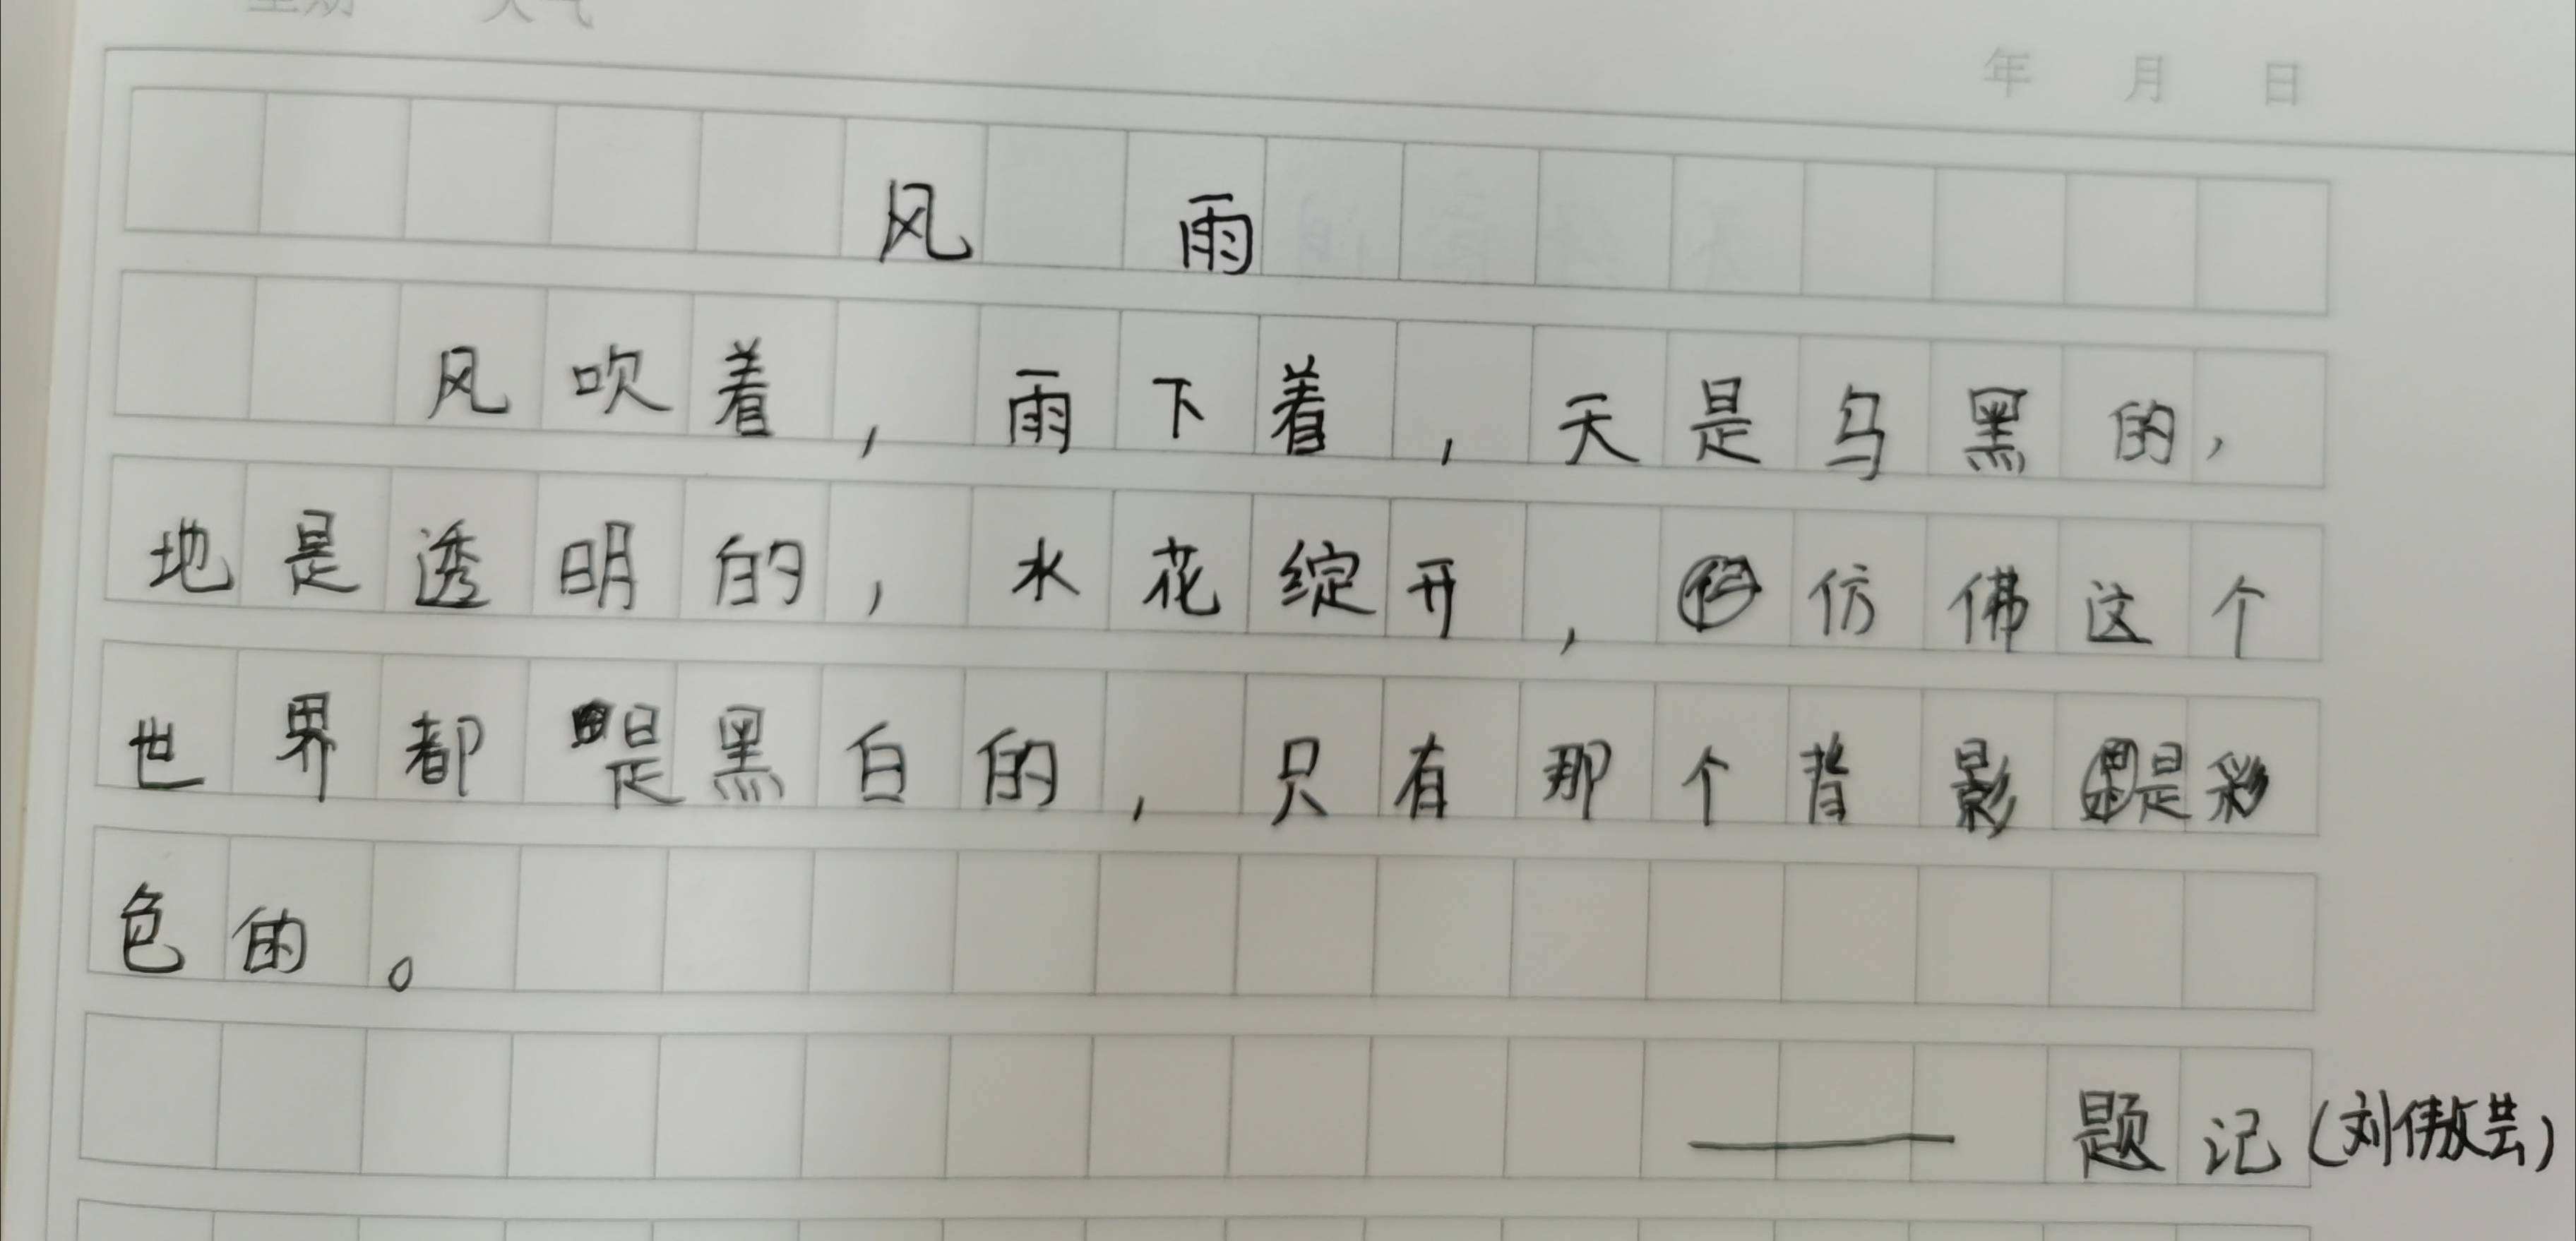 星期 天气
年 月 日
风 雨
风吹着，雨下着，天是乌黑的，
地是透明的，水花绽开，仿佛这个
世界都是黑白的，只有那个背影是彩
色的。
—— 题记(刘傲芸)